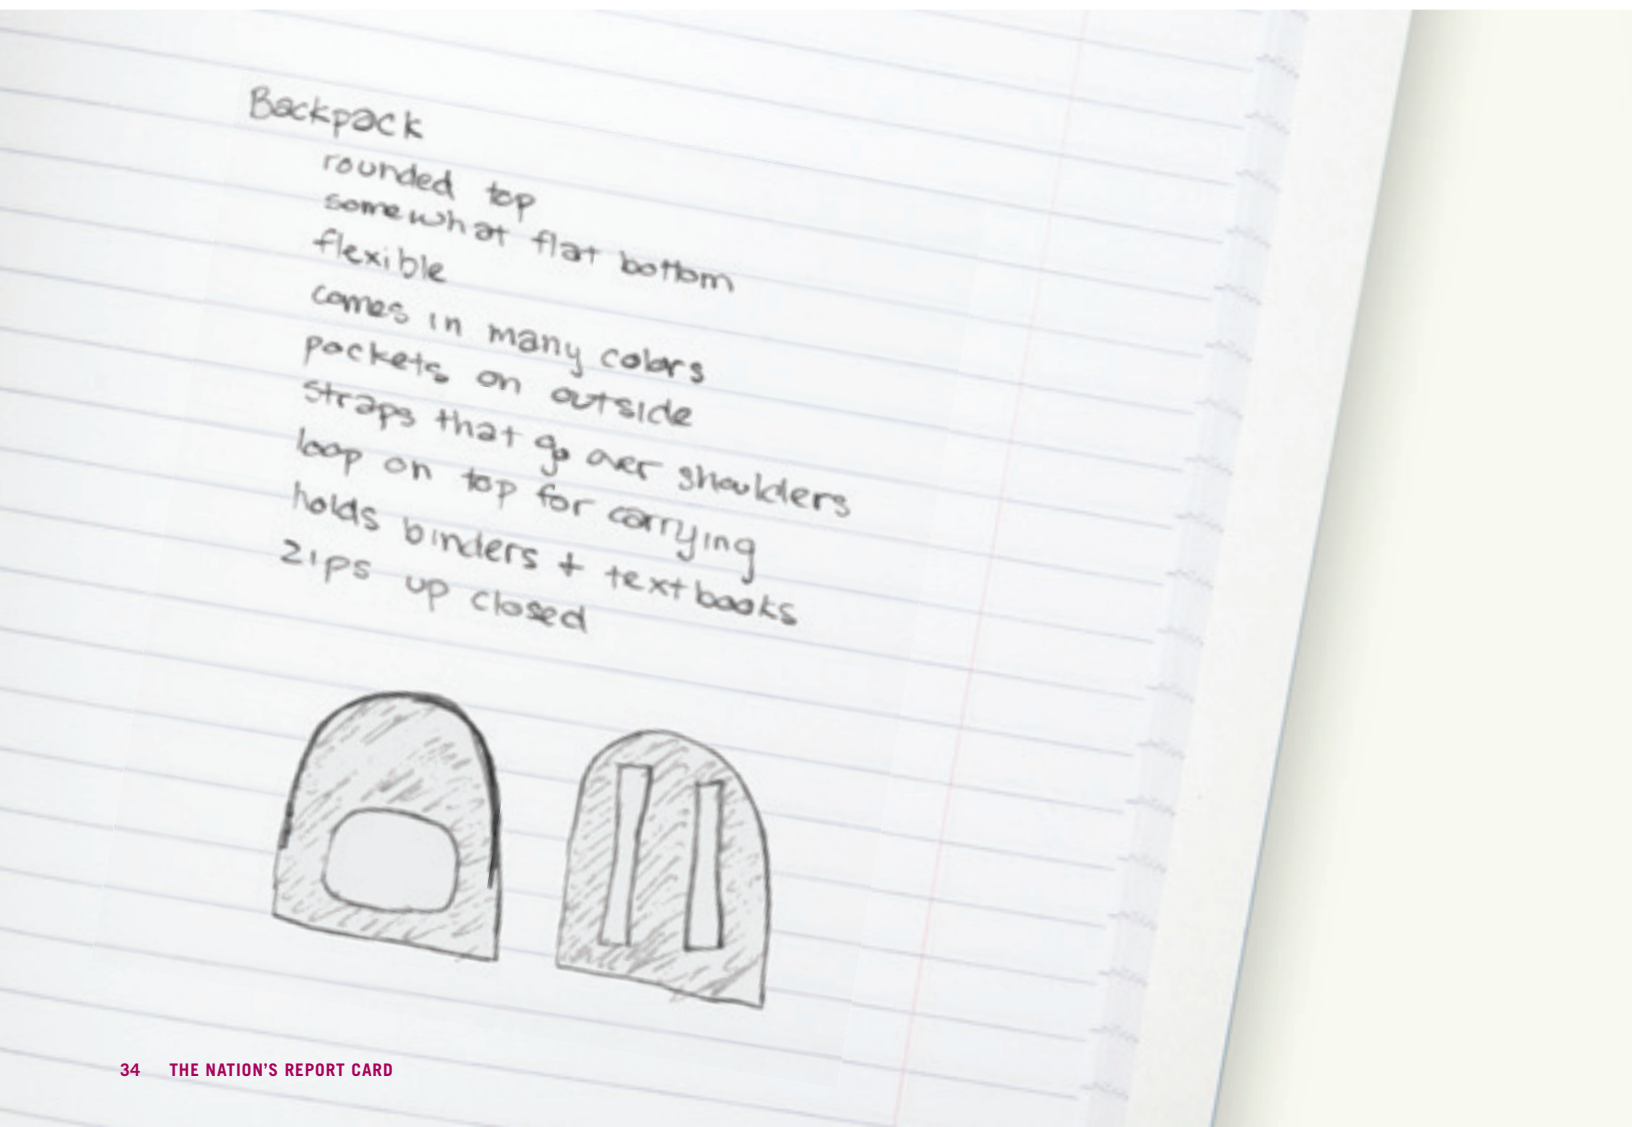 Backpack
rounded top
somewhat flat bottom
flexible
comes in many colors
pockets on outside
straps that go over shoulders
loop on top for carrying
holds binders + textbooks
zips up closed
34 THE NATION'S REPORT CARD